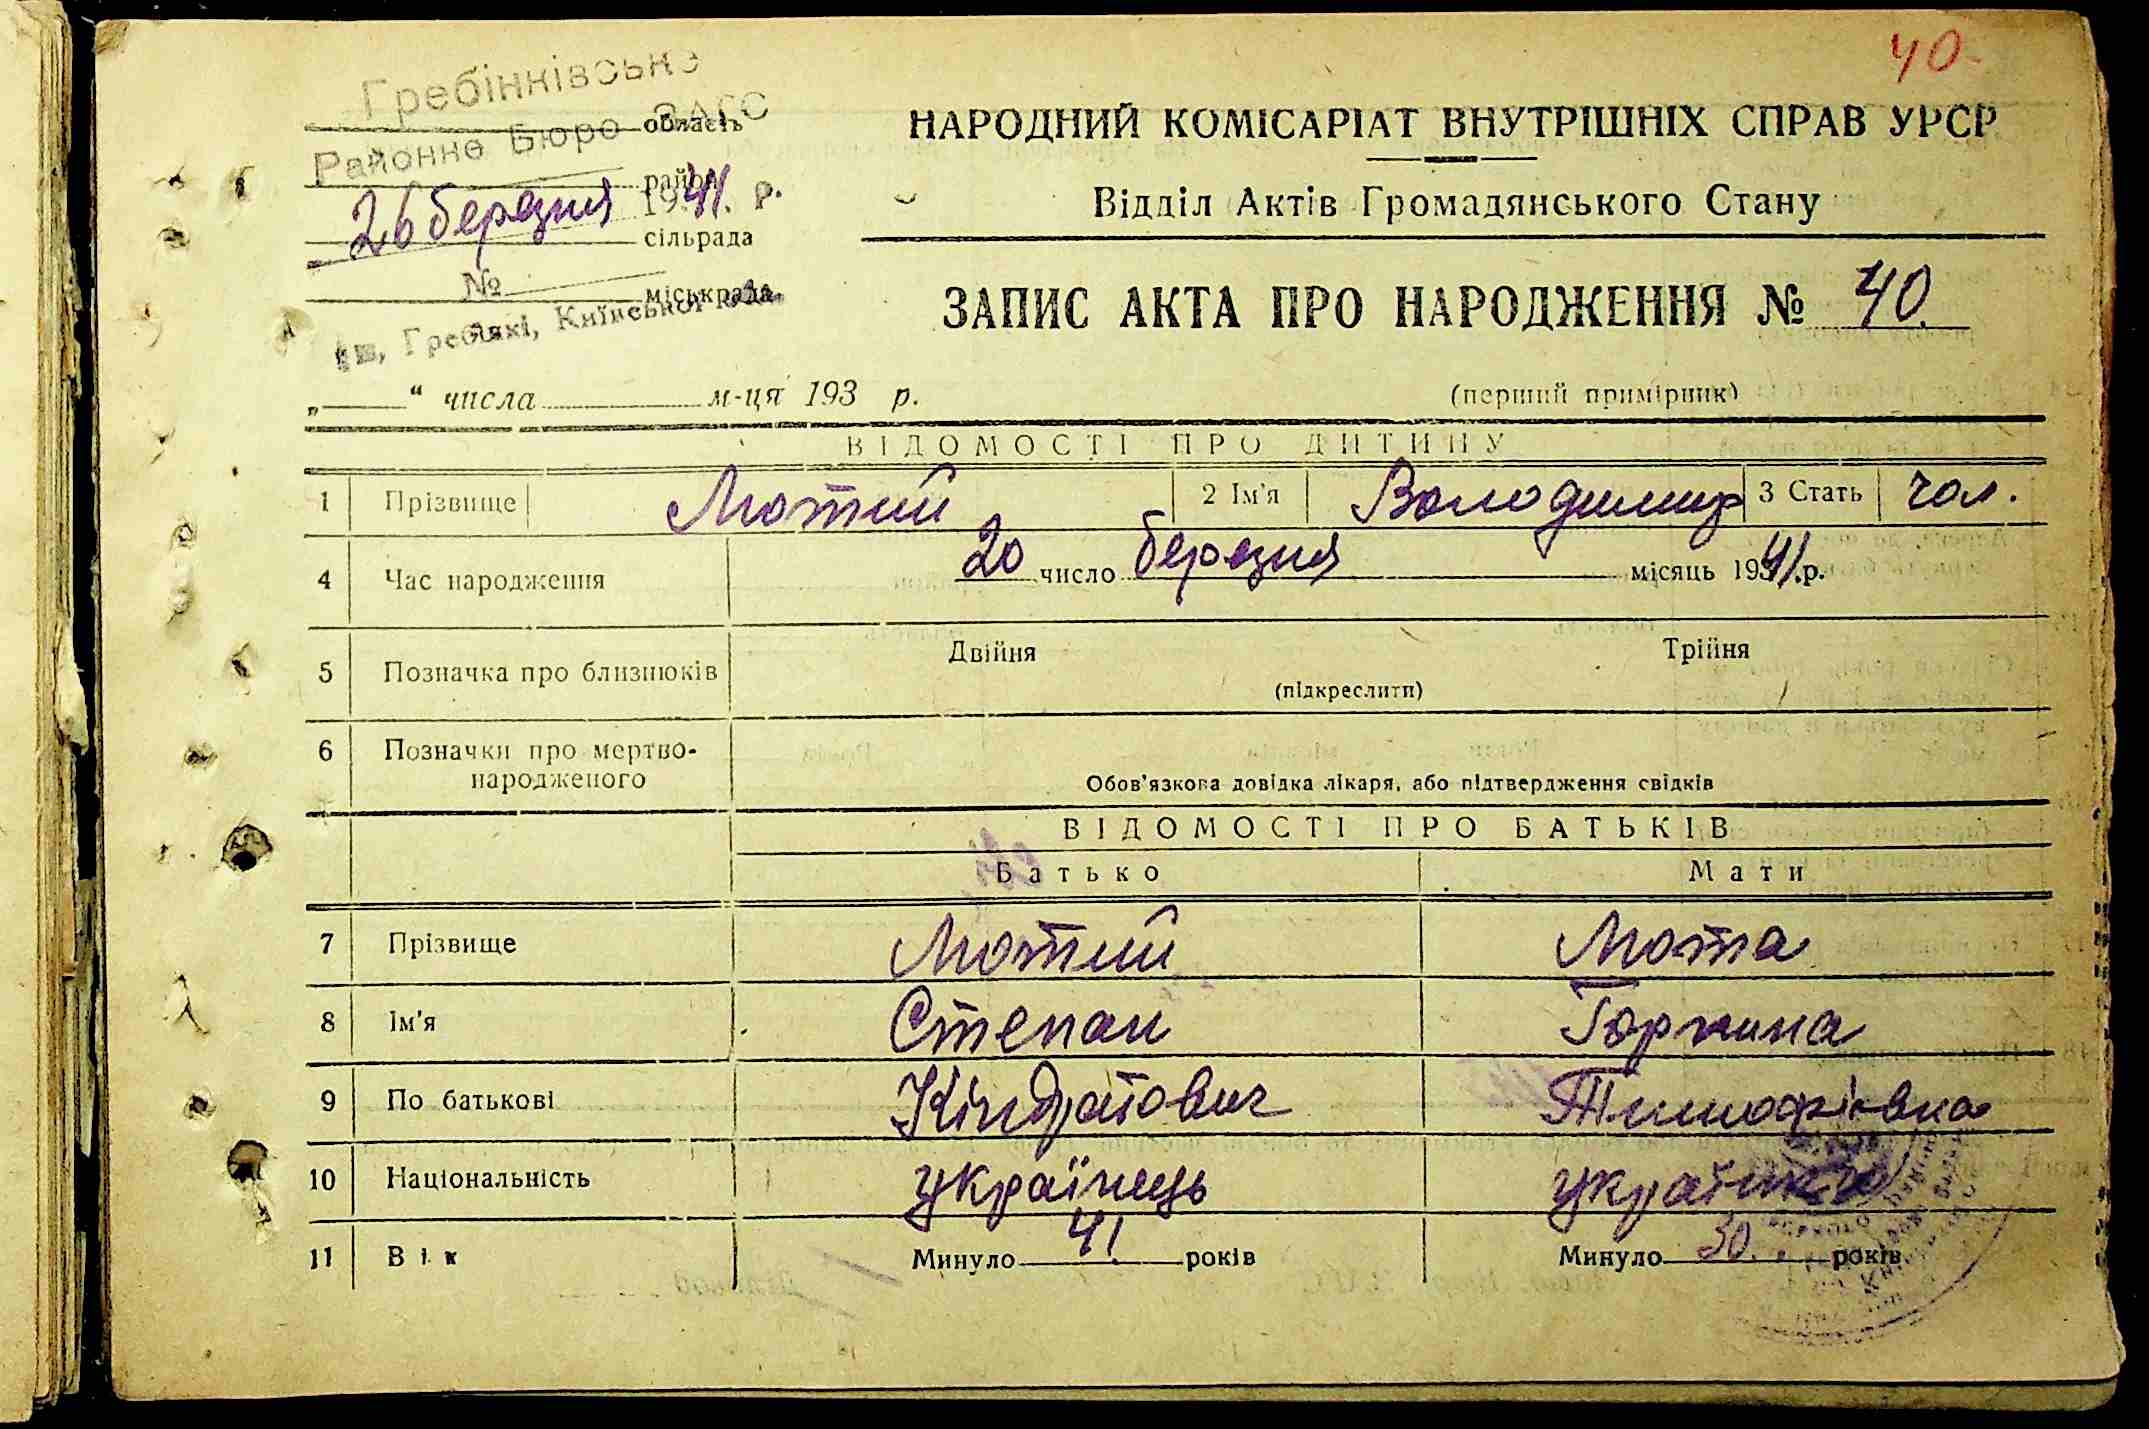 40.
Гребінківське
Районне Бюро ЗАГС
область
район
26 березня 1941. р.
сільрада
№
міськрада
Гребінкі, Київської обл.
НАРОДНИЙ КОМІСАРІАТ ВНУТРІШНІХ СПРАВ УРСР
Відділ Актів Громадянського Стану
ЗАПИС АКТА ПРО НАРОДЖЕННЯ № 40.
„ “ числа м-ця 193 р.
(перший примірник)
ВІДОМОСТІ ПРО ДИТИНУ
1 Прізвище Лютий 2 Ім'я Володимир 3 Стать чол.
4 Час народження 20 число березня місяць 1941.р.
5 Позначка про близнюків Двійня Трійня
(підкреслити)
6 Позначки про мертво-
народженого
Обов'язкова довідка лікаря, або підтвердження свідків
ВІДОМОСТІ ПРО БАТЬКІВ
Батько Мати
7 Прізвище Лютий Люта
8 Ім'я Степан Горпина
9 По батькові Кіндратович Тимофіївна
10 Національність українець українка
11 Вік Минуло 41. років Минуло 30. років